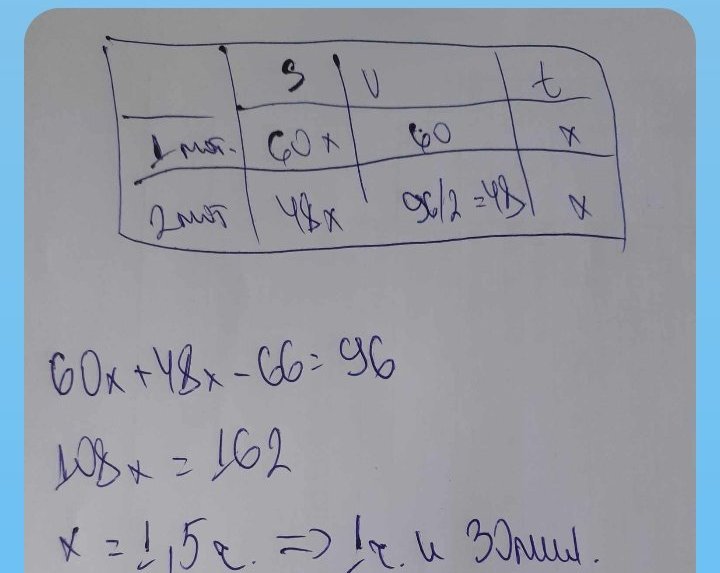 S v t
1 мот. 60x 60 x
2 мот 48x 96/2=48 x
60x+48x-66=96
108x=162
x=1,5ч. => 1ч. и 30мин.